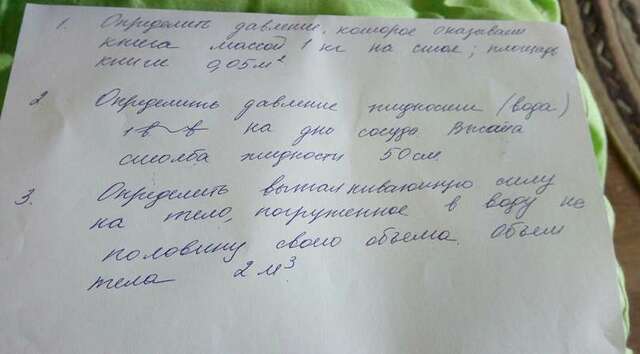 1. Определить давление, которое оказывает
книга массой 1 кг на стол; площадь
книги 0,05 м²
2 Определить давление жидкости (вода)
на дно сосуда Высота
столба жидкости 50 см
3. Определить выталкивающую силу
на тело, погруженное в воду на
половину своего объема. Объем
тела 2 м³